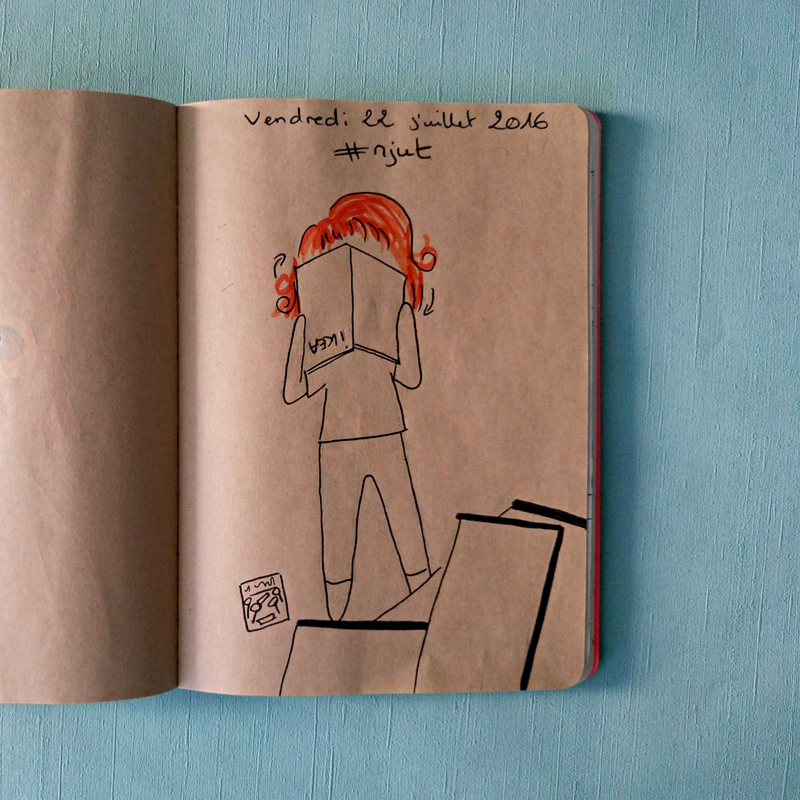 Vendredi 22 juillet 2016
#njut
iKEA